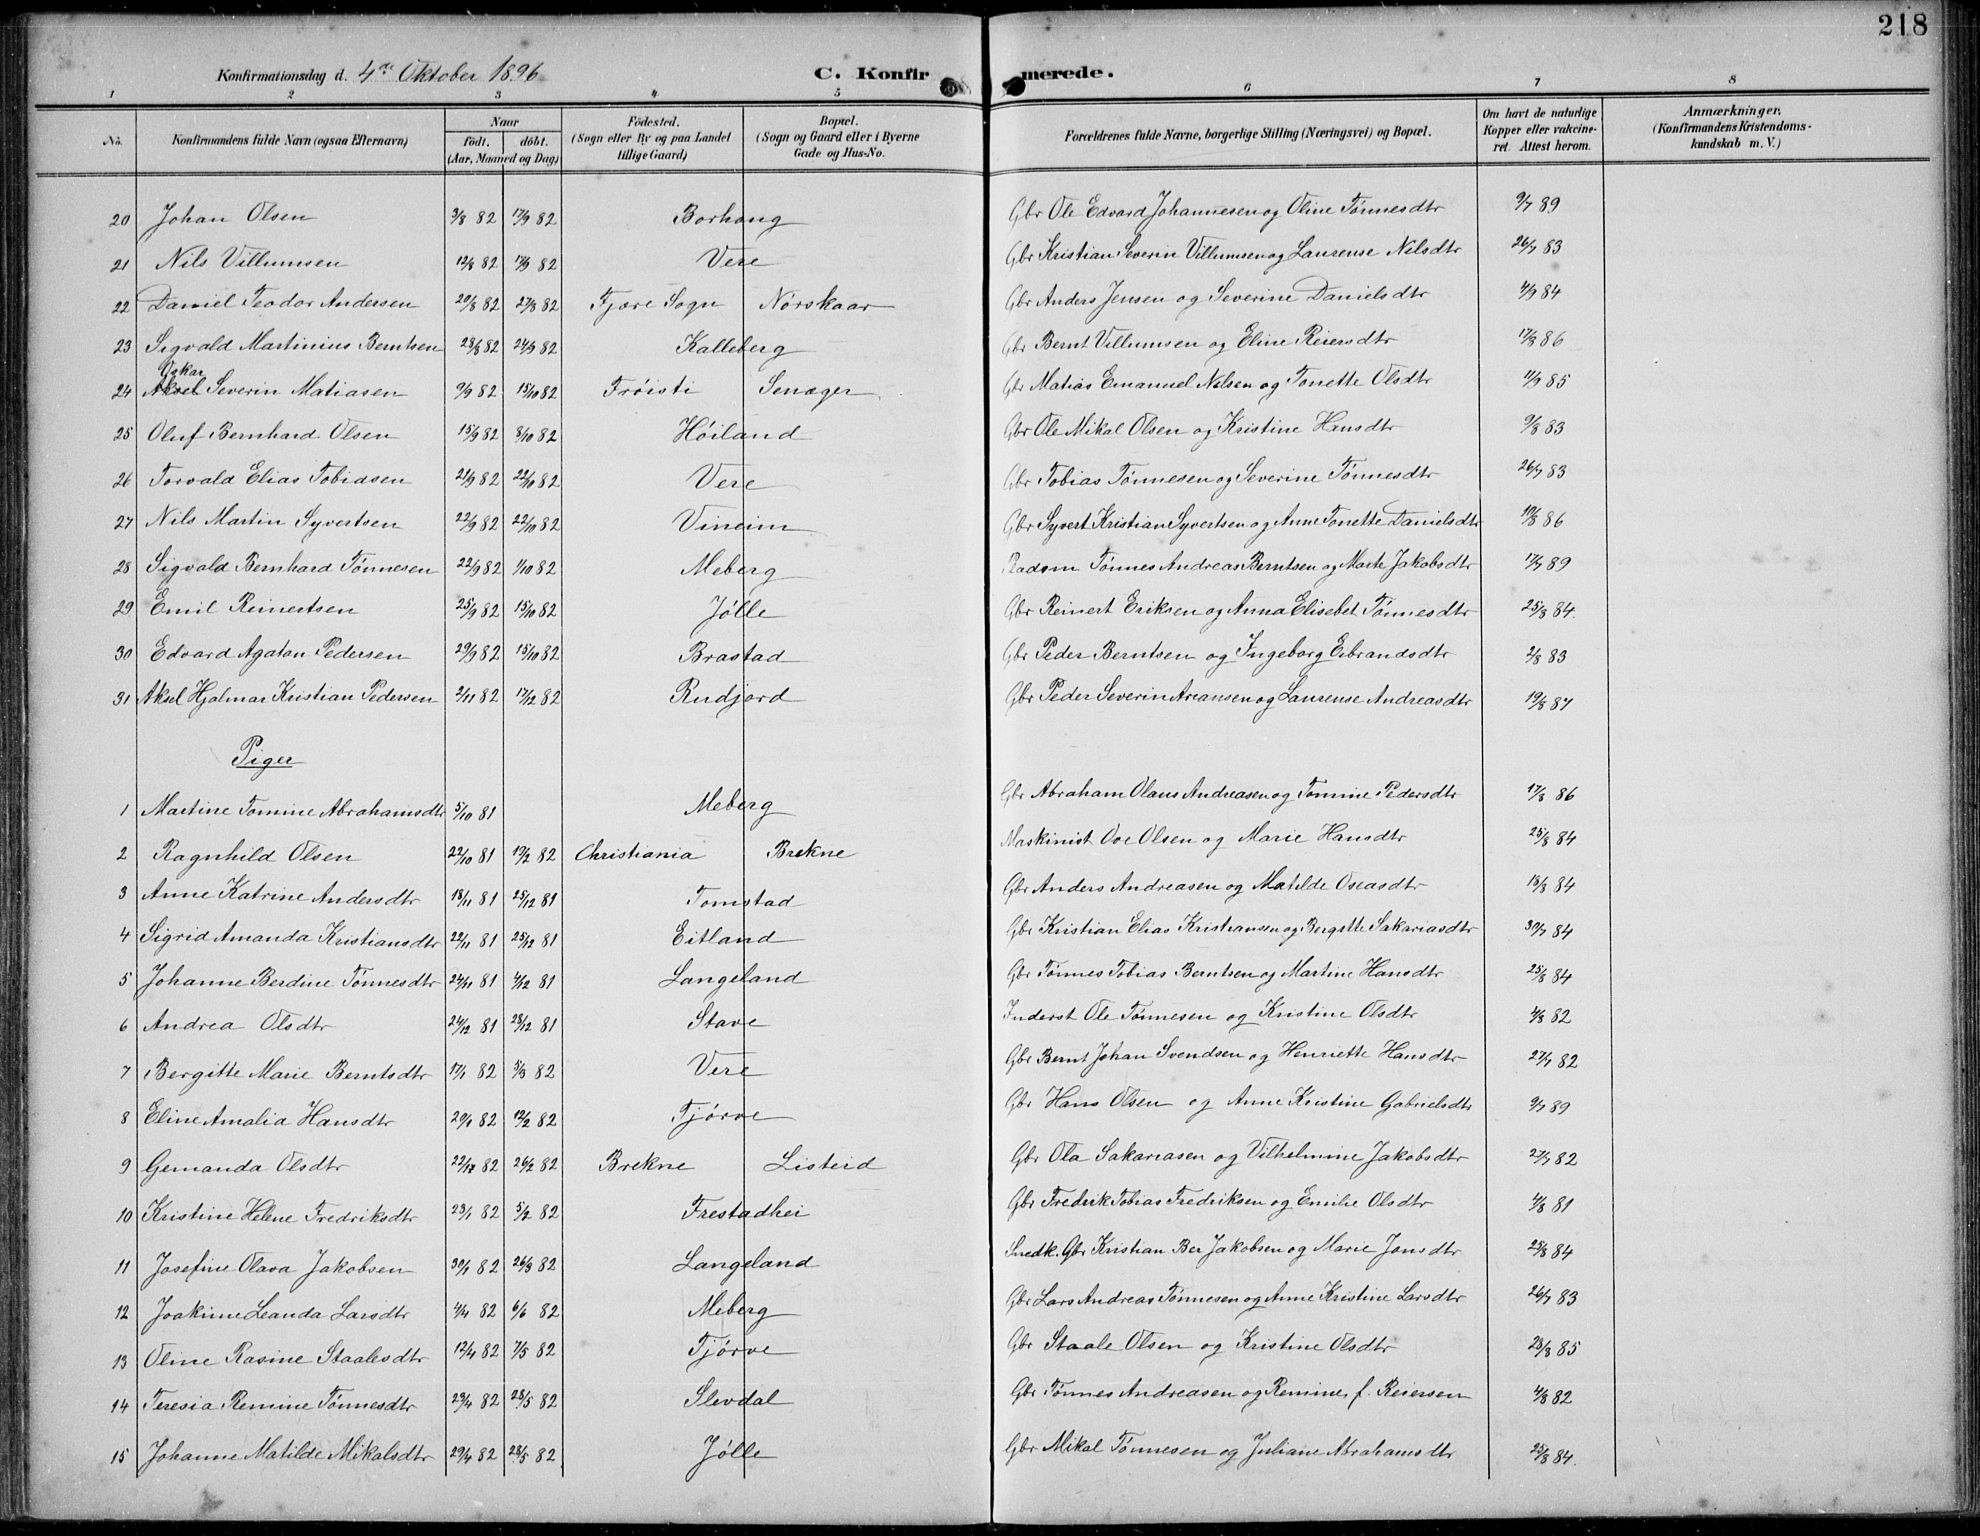 218
Konfirmationsdag d. 4de Oktober 1896 C. Konfirmerede.
1 2 3 4 5 6 7 8
No. Konfirmandens fulde Navn (ogsaa Efternavn) Naar født. døbt. (Aar, Maaned og Dag) Fødested. (Sogn eller By og paa Landet tillige Gaard) Bopæl. (Sogn og Gaard eller i Byerne Gade og Hus-No. Forældrenes fulde Navne, borgerlige Stilling (Næringsvei) og Bopæl. Om havt de naturlige Kopper eller vakcineret. Attest herom. Anmærkninger. (Konfirmandens Kristendomskundskab m. V.)
20 Johan Olsen 3/8 82 17/9 82 Borhaug Gbr Ole Edvard Johannesen og Oline Tønnesdtr 9/7 89
21 Nils Villumsen 12/8 82 17/9 82 Vere Gbr Kristian Severin Villumsen og Laurense Nilsdtr 26/7 83
22 Daniel Teodor Andersen 20/8 82 27/8 82 Fjære Sogn Nørskaar Gbr Anders Jensen og Severine Danielsdtr 4/9 84
23 Sigvald Martinius Berntsen 28/8 82 24/9 82 Kalleberg Gbr Bernt Villumsen og Eline Reiersdtr 17/8 86
24 Oskar Severin Matiasen 9/9 82 15/10 82 Frøisti Snæger Gbr Matias Emanuel Nilsen og Tonette Olsdtr 11/9 85
25 Oluf Bernhard Olsen 15/9 82 8/10 82 Høiland Gbr Ole Mikal Olsen og Kristine Hansdtr 9/8 83
26 Torvald Elias Tobiasen 21/9 82 22/10 82 Vere Gbr Tobias Tønnesen og Severine Tønnesdtr 26/7 83
27 Nils Martin Syvertsen 22/9 82 22/10 82 Vineim Gbr Syvert Kristian Syvertsen og Anne Tonette Danielsdtr 10/8 86
28 Sigvald Bernhard Tønnesen 22/9 82 1/10 82 Meberg Pladsm Tønnes Andreas Berntsen og Marte Jakobsdtr 17/7 89
29 Emil Reinertsen 25/9 82 15/10 82 Jølle Gbr Reinert Eriksen og Anna Elisebet Tønnesdtr 25/8 84.
30 Edvard Agaton Pedersen 29/9 82 15/10 82 Brastad Gbr Peder Berntsen og Ingeborg Erbrandsdtr 2/8 83
31 Aksel Hjalmar Kristian Pedersen 2/11 82 17/12 82 Rudjord Gbr Peder Severin Ariansen og Laurense Andreasdtr 19/8 87
Piger
1 Martine Tomine Abrahamsdtr 5/10 81 Meberg Gbr Abraham Olaus Andreasen og Tomine Pedersdtr 17/8 86
2 Ragnhild Olsen 22/10 81 19/2 82 Christiania Brekne Maskinist Ove Olsen og Marie Hansdtr 25/8 84
3 Anne Katrine Andersdtr 18/11 81 25/12 81 Tomstad Gbr Anders Andreasen og Matilde Oseasdtr 18/8 84
4 Sigrid Amanda Kristiansdtr 22/11 81 25/12 81 Eitland Gbr Kristian Elias Kristiansen og Bergitte Sakariasdtr 30/7 84
5 Johanne Berdine Tønnesdtr 24/11 81 4/12 81 Langeland Gbr Tønnes Tobias Berntsen og Martine Hansdtr 25/8 84
6 Andrea Olsdtr 24/12 81 28/12 81 Stave Inderst Ole Tønnesen og Kristine Olsdtr 4/8 82
7 Bergitte Marie Berntsdtr 17/1 82 5/3 82 Vere Gbr Bernt Johan Svendsen og Henriette Hansdtr 27/7 82
8 Eline Amalia Hansdtr 20/1 82 12/2 82 Tjørve Gbr Hans Olsen og Anne Kristine Gabrielsdtr 9/7 89
9 Gemanda Olsdtr 22/1 82 26/2 82 Brekne Listeid Gbr Ola Sakariasen og Vilhelmine Jakobsdtr 27/7 82
10 Kristine Helene Fredriksdtr 23/1 82 5/2 82 Frestadhei Gbr Fredrik Tobias Fredriksen og Emilie Olsdtr 4/8 81
11 Josefine Olava Jakobsen 30/1 82 26/3 82 Langeland Snedk. Gbr Kristian Ber Jakobsen og Marie Jonsdtr 25/8 84
12 Joakime Leanda Larsdtr 4/4 82 6/6 82 Meberg Gbr Lars Andreas Tønnesen og Anne Kristine Larsdtr 26/7 83
13 Oline Rasine Staalesdtr 12/4 82 7/5 82 Tjørve Gbr Staale Olsen og Kristine Olsdtr 28/8 85
14 Teresia Remine Tønnesdtr 23/4 82 28/5 82 Slevdal Gbr Tønnes Andreasen og Remine f. Reiersen 4/8 82
15 Johanne Matilde Mikalsdtr 29/4 82 28/5 82 Jølle Gbr Mikal Tønnesen og Juliane Abrahamsdtr 25/8 84.